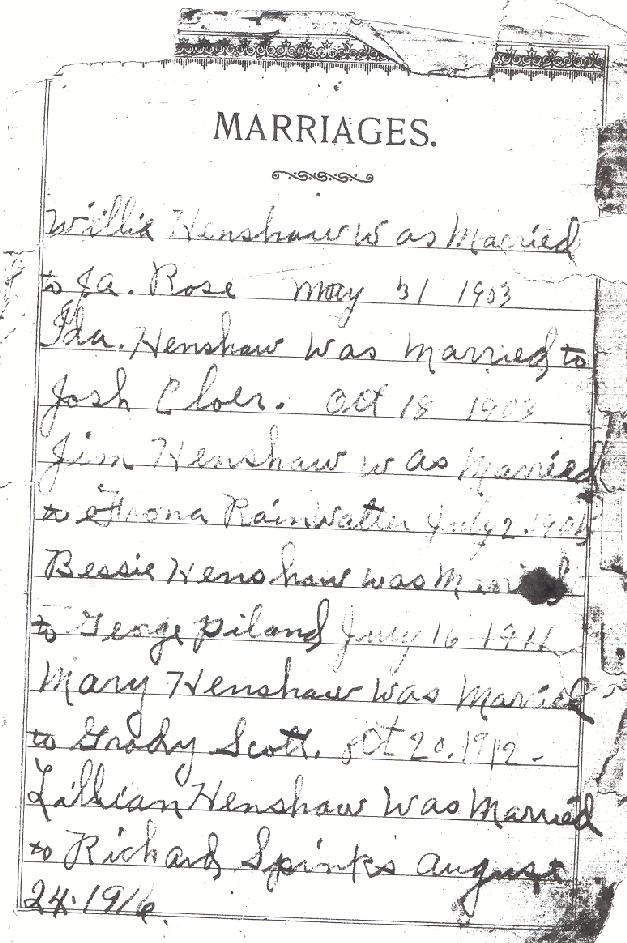 MARRIAGES.
Willie Henshaw was Married
to Ja. Rose may 31 1903
Ida. Henshaw was married to
Josh Cloer. Oct 18 1903
Jim Henshaw was Married
to Rainwatter July 2.
Bessie Henshaw was Married
to George Piland July 16 1911
Mary Henshaw was Married
to Grady Scott. Oct 20. 1912.
Lillian Henshaw was Married
to Richard Spinks august
24. 1916.